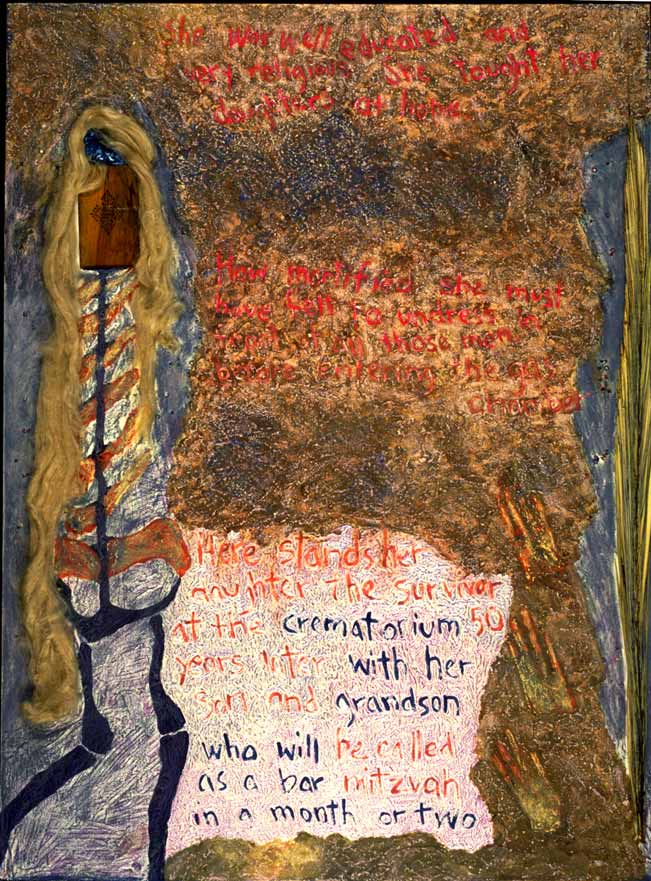 She was well educated and
very religious. She tought her
daughters at home.
How mortified she must
have felt to undress in
front of all those men
before entering the gas
chamber
Here stands her
daughter the survivor
at the crematorium 50
years later with her
son and grandson
who will be called
as a bar mitzvah
in a month or two